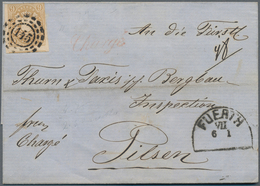 An die Fürstl
145
Thurn & Taxis'sche Bergbau
Inspection
frei
Chargé
Pilsen
FUERTH
VII
6 1